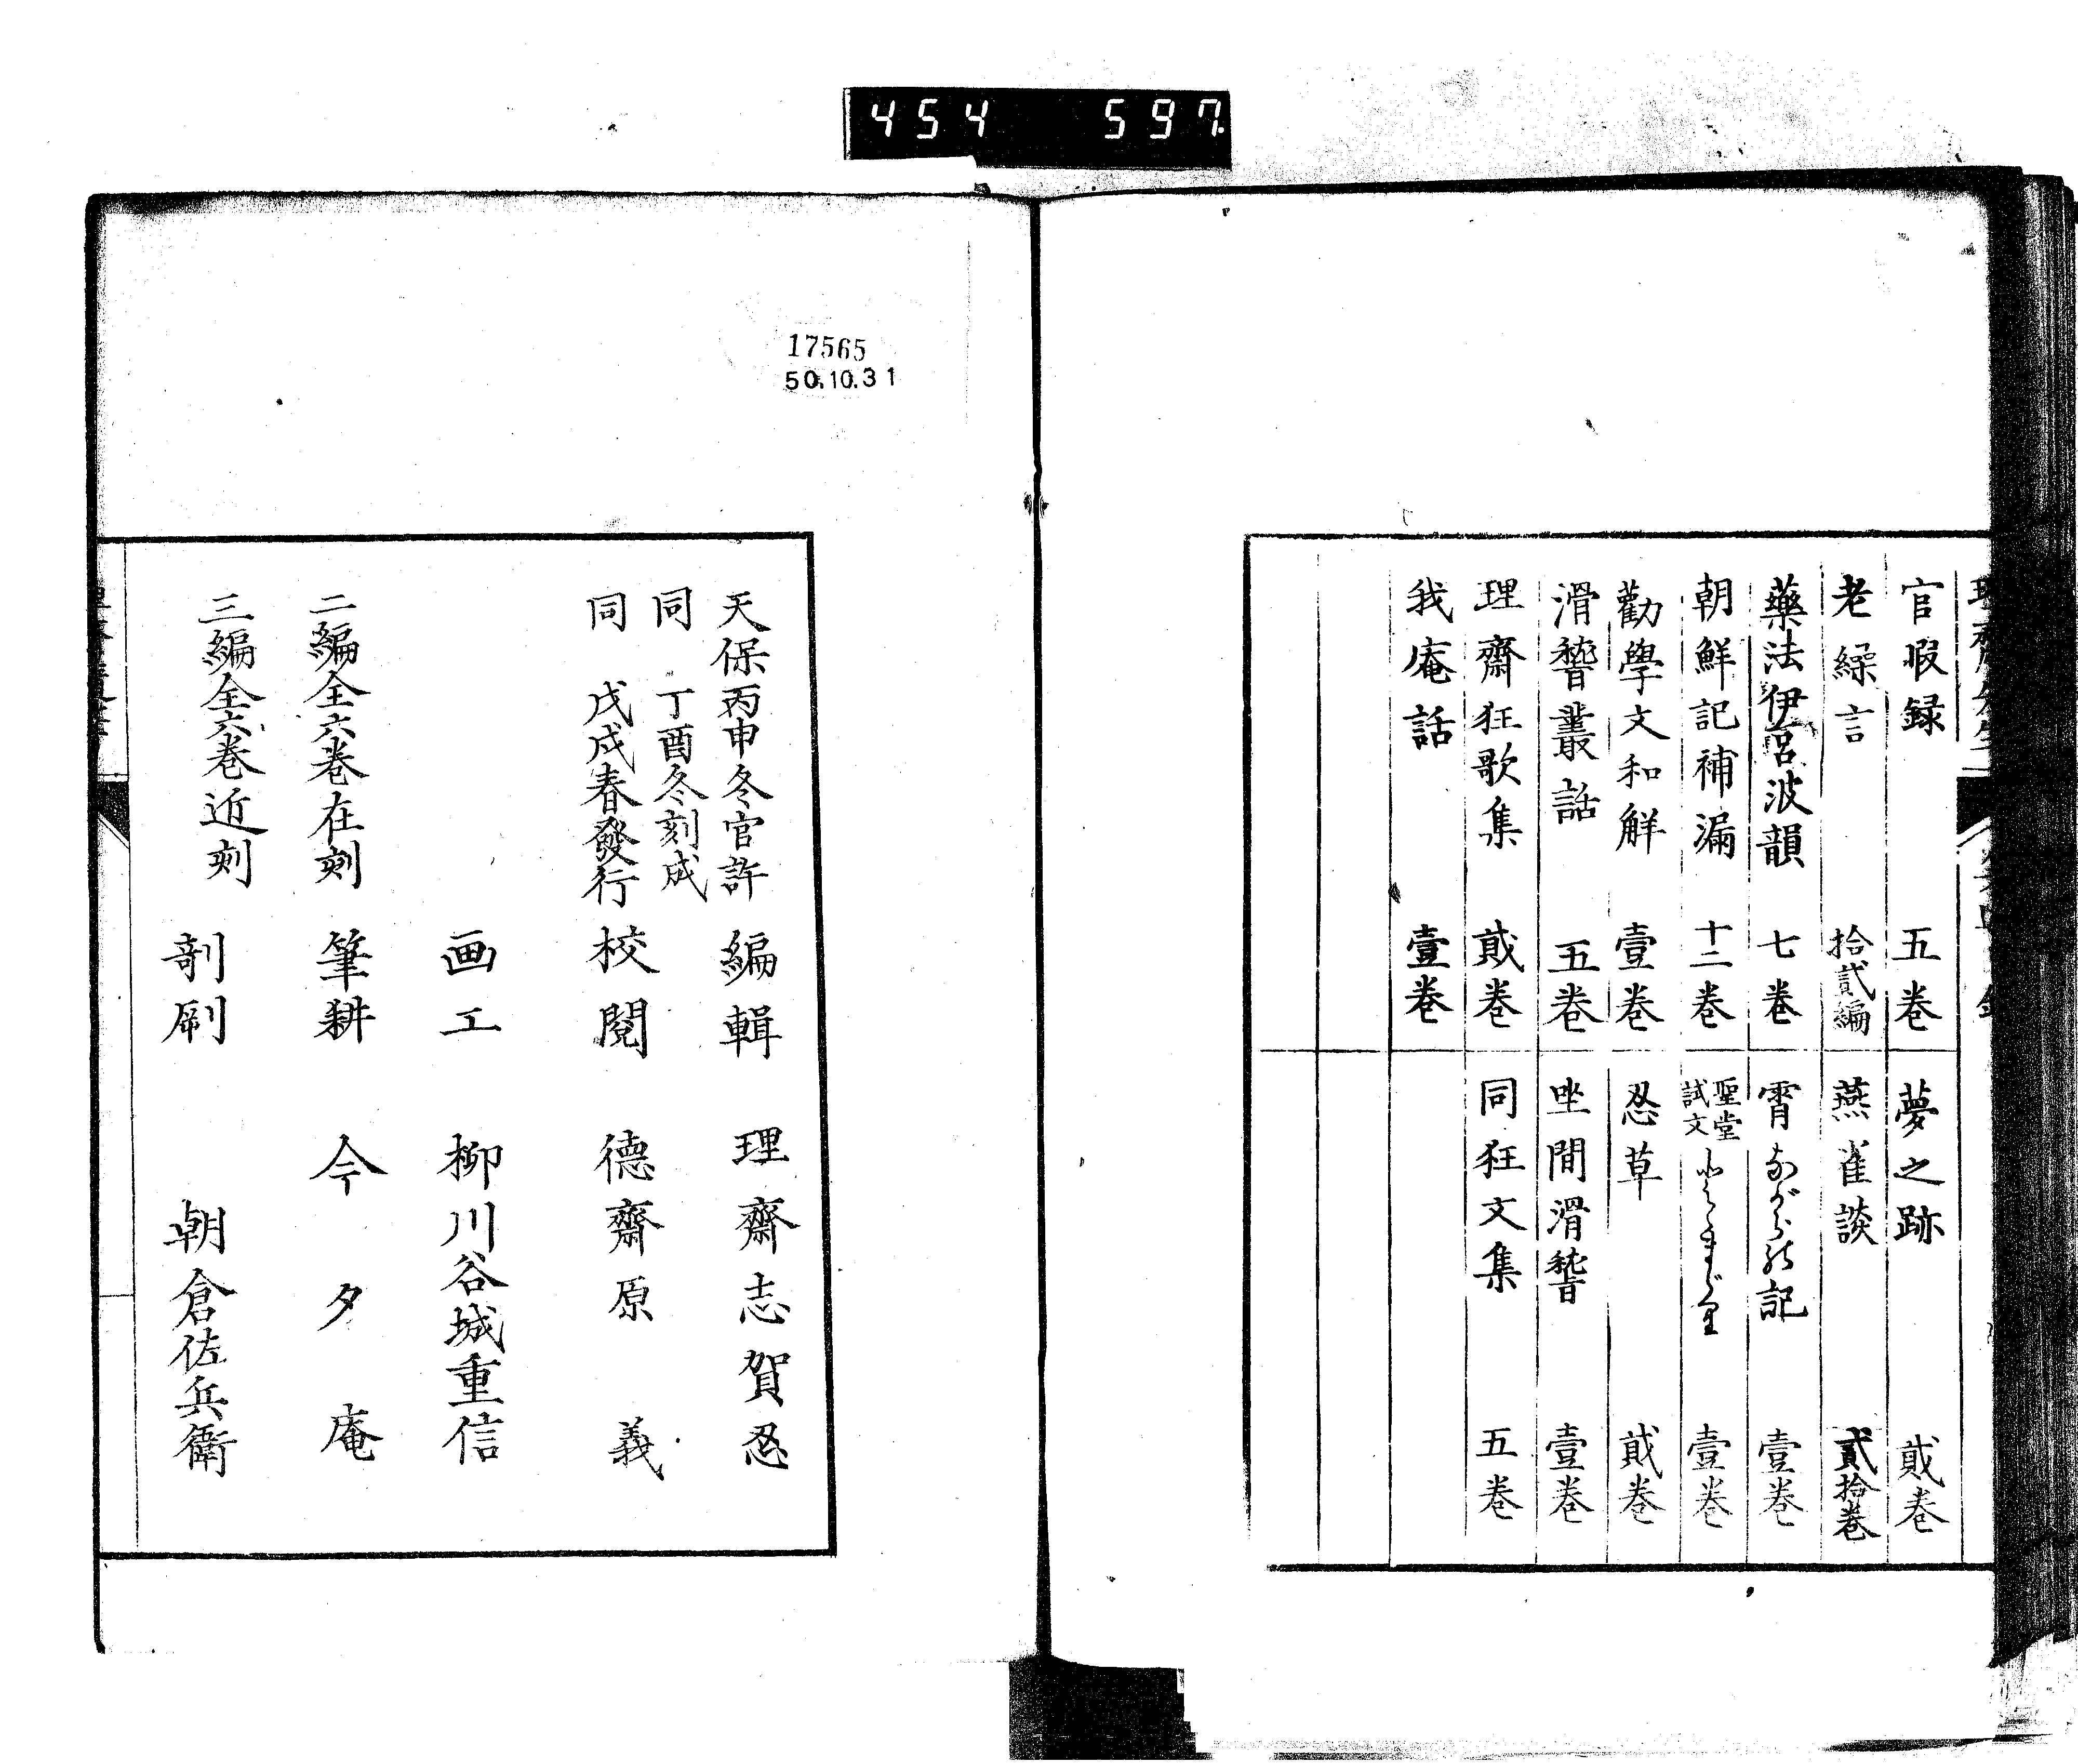 454 597
官暇録 五巻 夢之跡 貮巻
老繰言 拾貳編 燕雀談 貳拾巻
藥法伊呂波韻 七巻 霄ながらの記 壹巻
朝鮮記補漏 十二巻 聖堂試文 壹巻
勸學文和觧 壹巻 忍草 貮巻
滑稽叢話 五巻 坐間滑稽 壹巻
理齋狂歌集 貮巻 同狂文集 五巻
我庵話 壹巻
17565
50.10.31
天保丙申冬官許 編輯 理齋志賀忍
同 丁酉冬刻成
同 戊戌春發行 校閲 德齋原義
画工 柳川谷城重信
二編全六巻在刻 筆耕 今夕庵
三編全六巻近刻 剞劂 朝倉佐兵衛